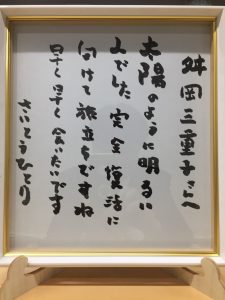 舛岡三重子さんへ
太陽のように明るい
人でした 完全復活に
向けて旅立ちですね
早く早く会いたいです
さいとうひとり